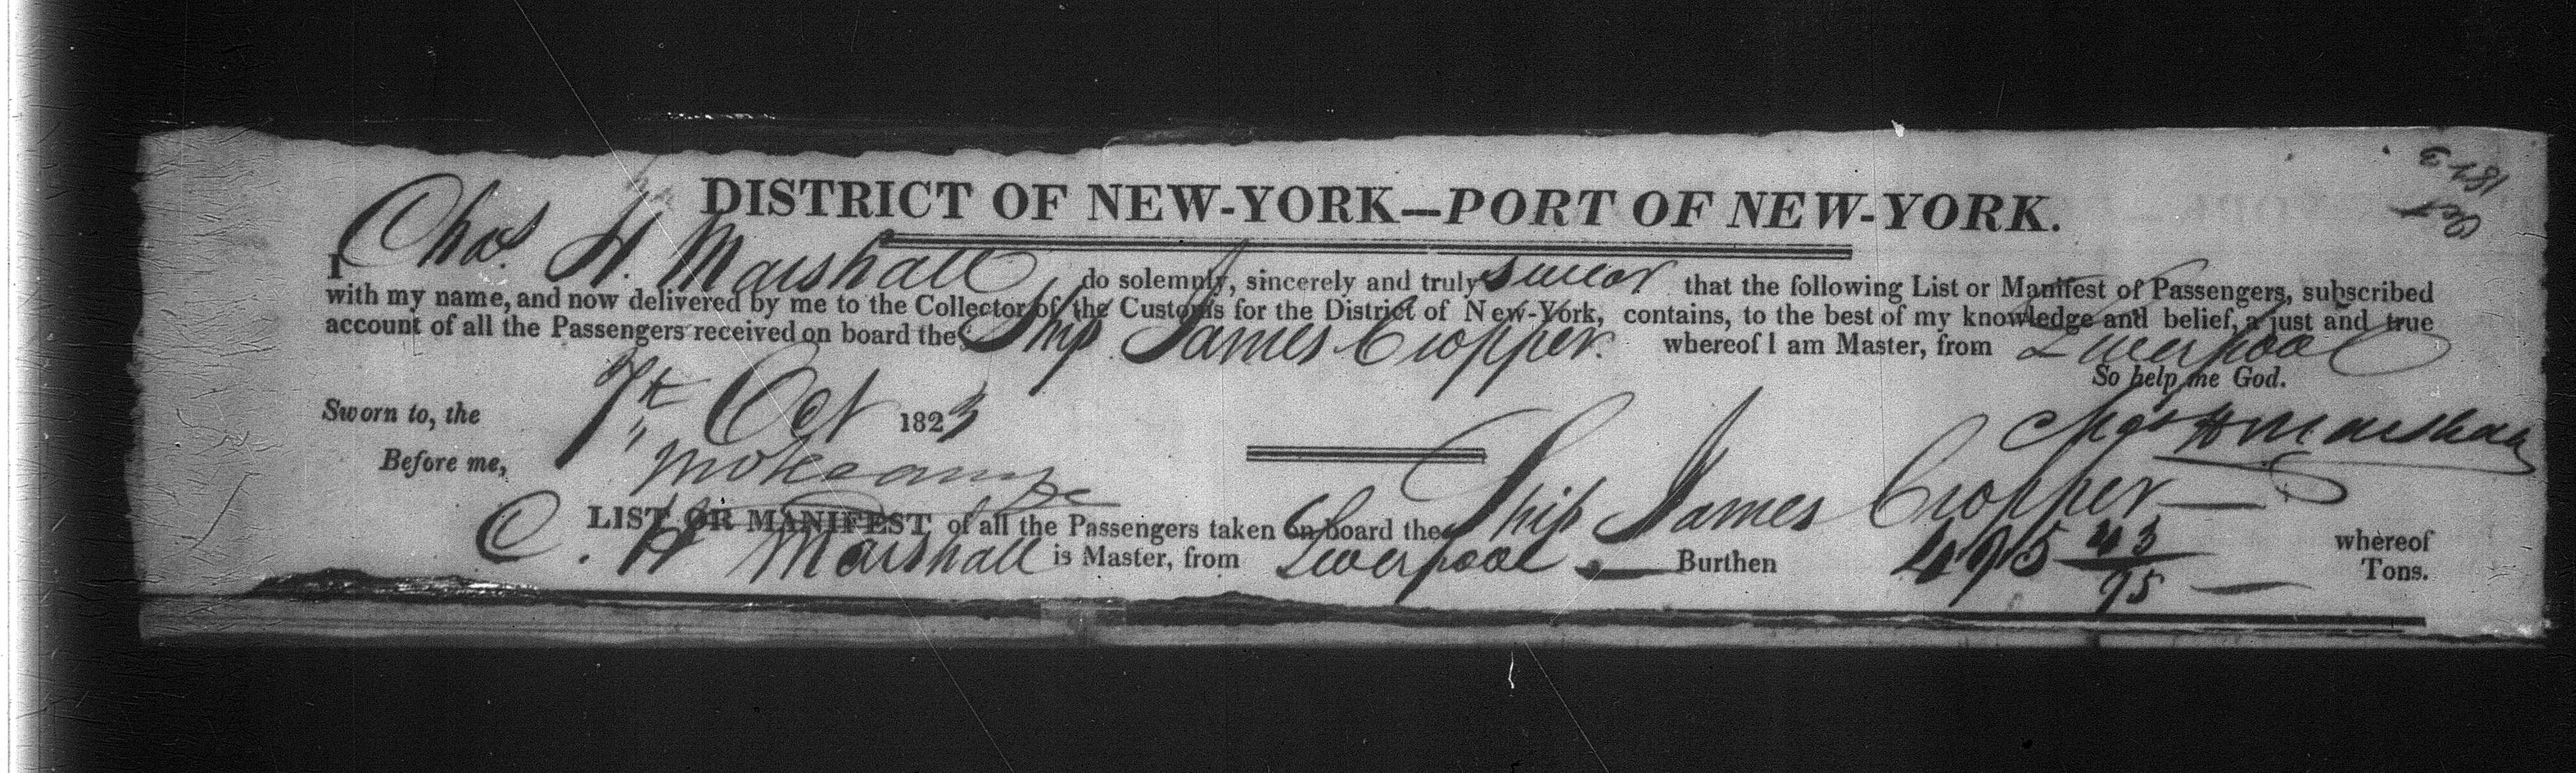 Oct
1823
DISTRICT OF NEW-YORK—PORT OF NEW-YORK.
I Chas. H. Marshall do solemnly, sincerely and truly swear that the following List or Manifest of Passengers, subscribed
with my name, and now delivered by me to the Collector of the Customs for the District of New-York, contains, to the best of my knowledge and belief, a just and true
account of all the Passengers received on board the Ship James Cropper. whereof I am Master, from Liverpool
So help me God.
Sworn to, the 7th Oct 1823
Chas H Marshall
Before me,
LIST OR MANIFEST of all the Passengers taken on board the Ship James Cropper — whereof
C. H Marshall is Master, from Liverpool — Burthen 495 43/95 — Tons.